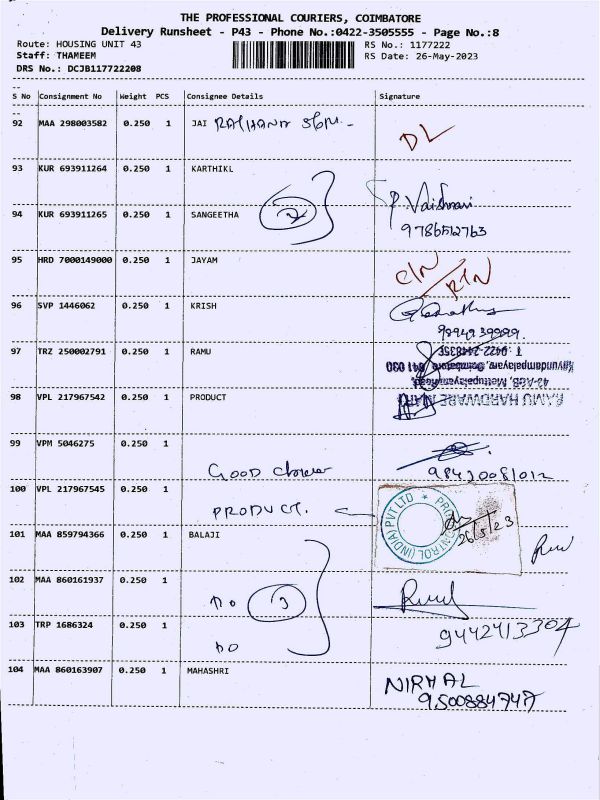 THE PROFESSIONAL COURIERS, COIMBATORE
Delivery Runsheet - P43 - Phone No.:0422-3505555 - Page No.:8
Route: HOUSING UNIT 43 RS No.: 1177222
Staff: THAMEEM RS Date: 26-May-2023
DRS No.: DCJB117722208
S No Consignment No Weight PCS Consignee Details Signature
92 MAA 298003582 0.250 1 JAI DL
93 KUR 693911264 0.250 1 KARTHIKL
P. Vaishnavi
94 KUR 693911265 0.250 1 SANGEETHA 2
9786512763
95 HRD 7000149000 0.250 1 JAYAM C/N RTN
96 SVP 1446062 0.250 1 KRISH
9894939999.
97 TRZ 250002791 0.250 1 RAMU
98 VPL 217967542 0.250 1 PRODUCT
RAMU HARDWARE MART
99 VPM 5046275 0.250 1
GOOD
100 VPL 217967545 0.250 1
PRODUCT.
CONTROL (INDIA) PVT LTD ★
26/5/23
101 MAA 859794366 0.250 1 BALAJI
102 MAA 860161937 0.250 1
DO 3
103 TRP 1686324 0.250 1
9442413304
DO
104 MAA 860163907 0.250 1 MAHASHRI
NIRMAL
9500884747